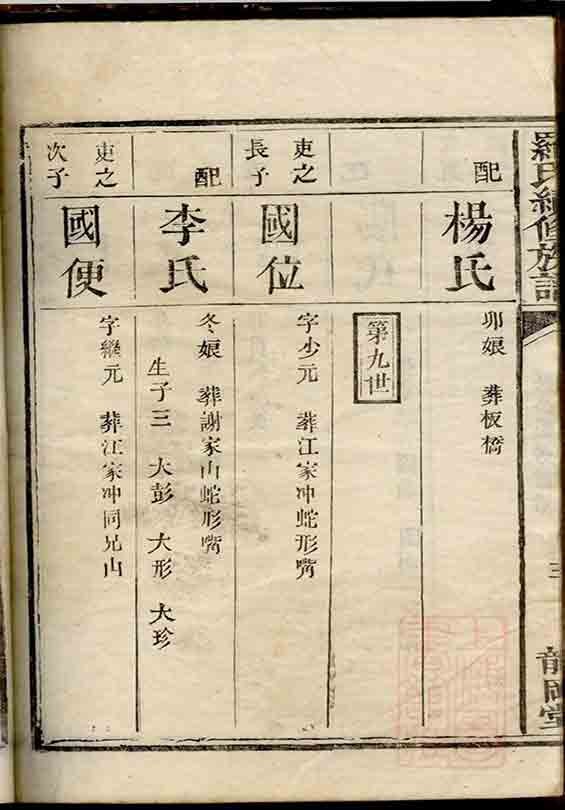 羅氏續修族譜
三
龍岡堂
配
楊氏
卯娘 葬板橋
第九世
吏之長子
國位
字少元 葬江家冲蛇形嘴
配
李氏
冬娘 葬謝家山蛇形嘴
生子三 大彭 大形 大珍
吏之次子
國便
字繼元 葬江家冲同兄山